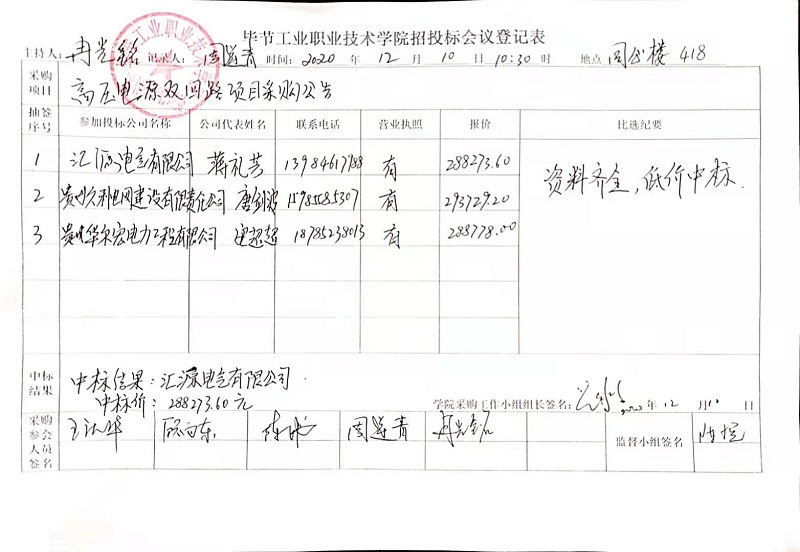 毕节工业职业技术学院招投标会议登记表
主持人：冉光铭 记录人：周道青 时间：2020 年 12 月 10 日 10:30 时 地点 办公楼 418
采购项目 高压电源双回路项目采购公告
抽签序号 参加投标公司名称 公司代表姓名 联系电话 营业执照 报价 比选纪要
1 汇源电气有限公司 蒋礼芳 13984617788 有 288273.60 资料齐全，低价中标.
2 贵州久利电网建设有限责任公司 唐剑波 有 293729.20
3 贵州华尔宏电力工程有限公司 超超 18785238013 有 288778.00
中标结果 中标结果：汇源电气有限公司
中标价：288273.60元
学院采购工作小组组长签名： 2020 年 12 月 10 日
采购参会人员签名 周道青 冉光铭 监督小组签名